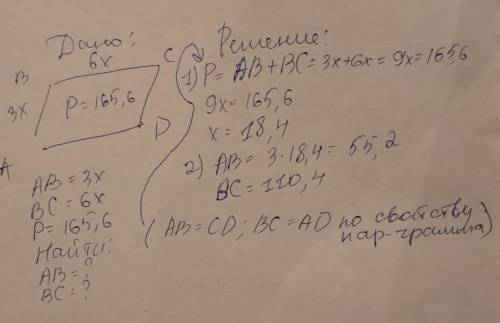 Дано:
6x
B
C
3x
P=165,6
A
D
AB=3x
BC=6x
P=165,6
Найти:
AB=?
BC=?
Решение:
1) P= AB+BC=3x+6x=9x=165,6
9x=165,6
x=18,4
2) AB= 3·18,4= 55,2
BC=110,4
(AB=CD; BC=AD по свойству
пар-грамма)